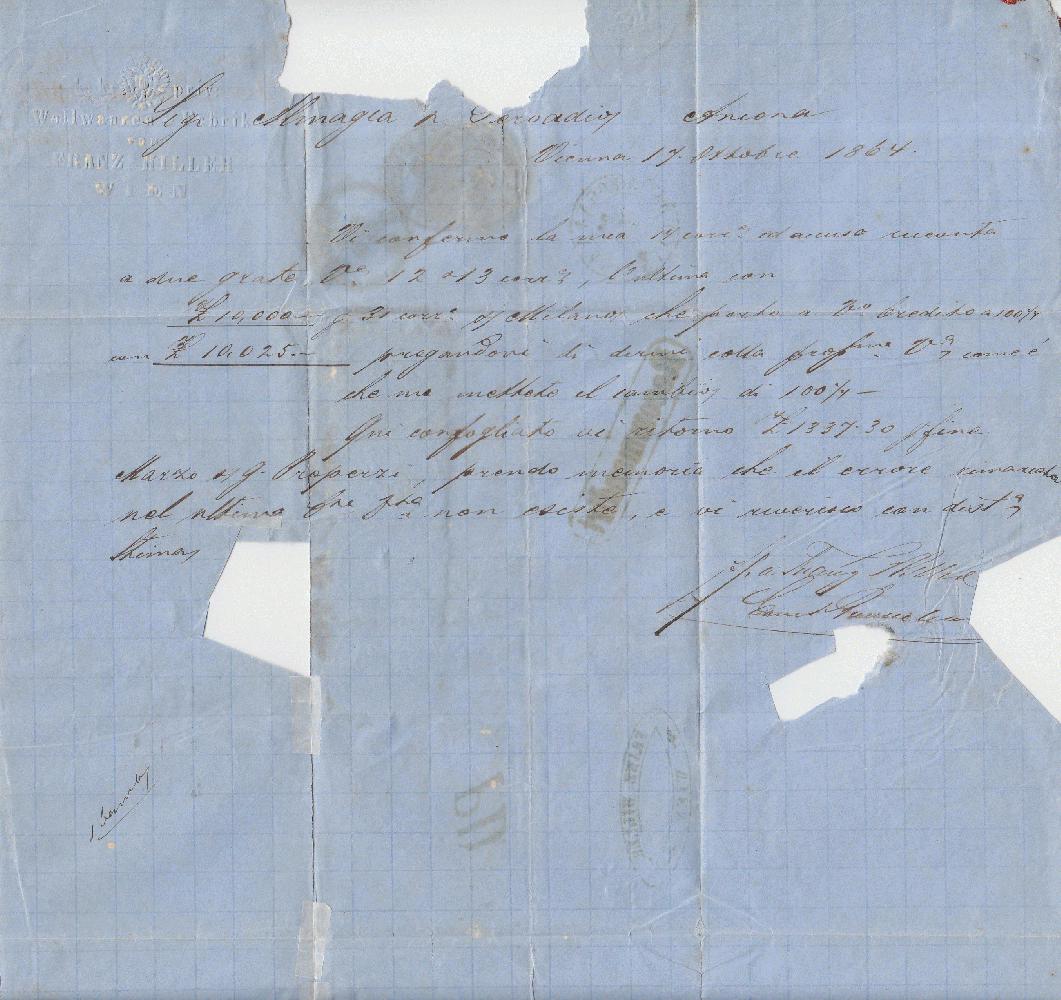 k. k. priv.
Wollwaaren Fabrik
von
FRANZ MILLER
WIEN
Sigi Almagia Ancona
Vienna 17. Ottobre 1864.
Vi confermo la mia 14 corr.e ed accuso ricevuta
a due grate V.e 12 e 13 corr.e, l'ultima con
£ 10,000.- p 31 corr.e s/ Milano che porto a V.o Credito a 100¼
con £ 10,025.- pregandovi di dirmi colla pross.ma V.a come è
che me mettete il cambio di 100¼ -
Qui confogliato vi ritorno £ 1337.30 p fine
Marzo s/ G. Properzi prendo memoria che il errore rimarcato
nel ultima non esiste, e vi riverisco con dist.a
Stima
p. a. Franz Miller